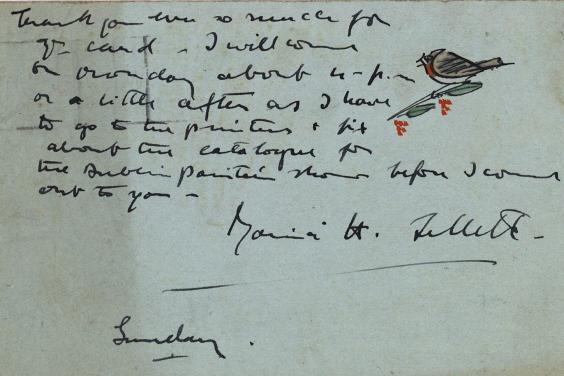 Thank you ever so much for
yr card - I will come
on monday about 4-p.m
or a little after as I have
to go to the printers & fix
about the catalogue for
the Dublin Painters show before I come
out to you -
H.
Sunday.